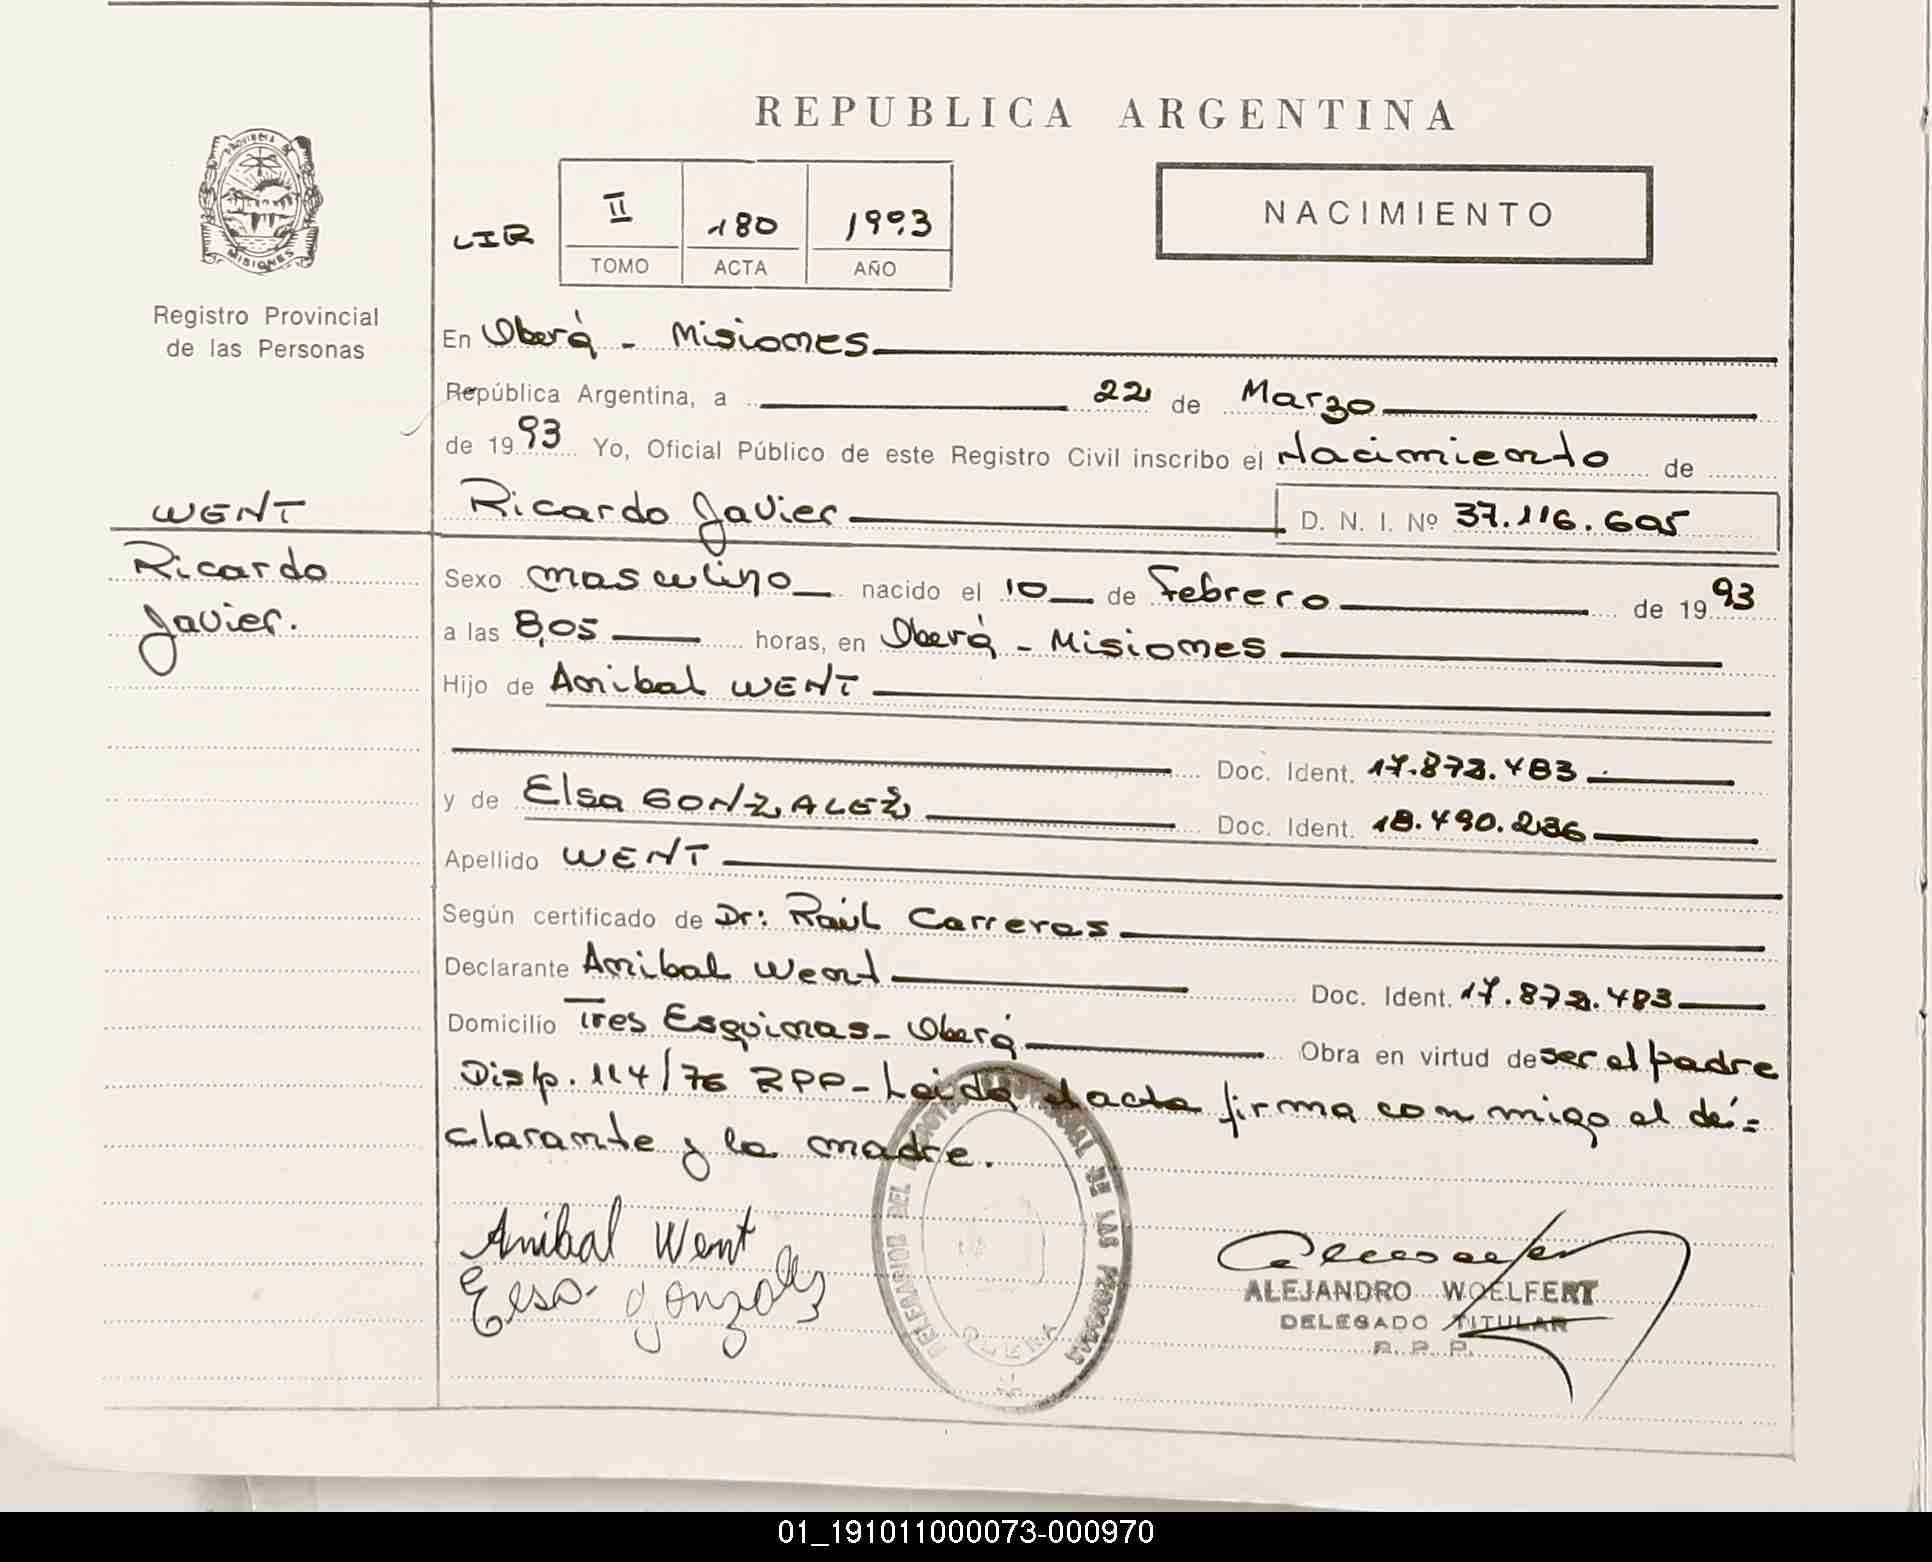 REPUBLICA ARGENTINA
PROVINCIA DE
MISIONES
Registro Provincial
de las Personas
LIR
II 180 1993
TOMO ACTA AÑO
NACIMIENTO
En Oberá - Misiones
República Argentina, a 22 de Marzo
de 1993 Yo, Oficial Público de este Registro Civil inscribo el Nacimiento de
Ricardo Javier D. N. I. Nº 37.116.605
WENT
Ricardo
Javier.
Sexo masculino nacido el 10 de Febrero de 1993
a las 8,05 horas, en Oberá - Misiones
Hijo de Anibal WENT
Doc. Ident. 17.872.483
y de Elsa GONZALEZ Doc. Ident. 18.490.236
Apellido WENT
Según certificado de Dr: Raúl Carreras
Declarante Anibal Went Doc. Ident. 17.872.483
Domicilio Tres Esquinas - Oberá Obra en virtud de ser el padre
Disp. 114/76 RPP - Leida el acta firma conmigo el de=
clarante y la madre.
Anibal Went
Elsa Gonzalez
DELEGACION DEL REGISTRO PROVINCIAL DE LAS PERSONAS
OBERA
ALEJANDRO WOELFERT
DELEGADO TITULAR
R. P. P.
01_191011000073-000970